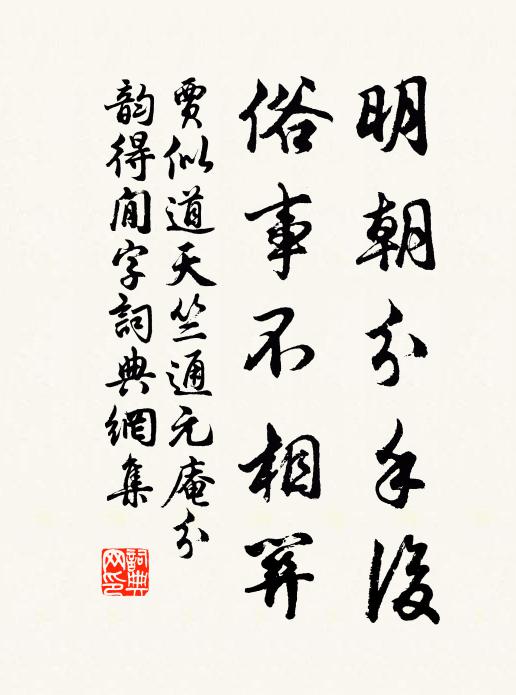 明朝分手後
俗事不相關
賈似道天竺通元庵分
韵得閒字詞典網集
詞典网印